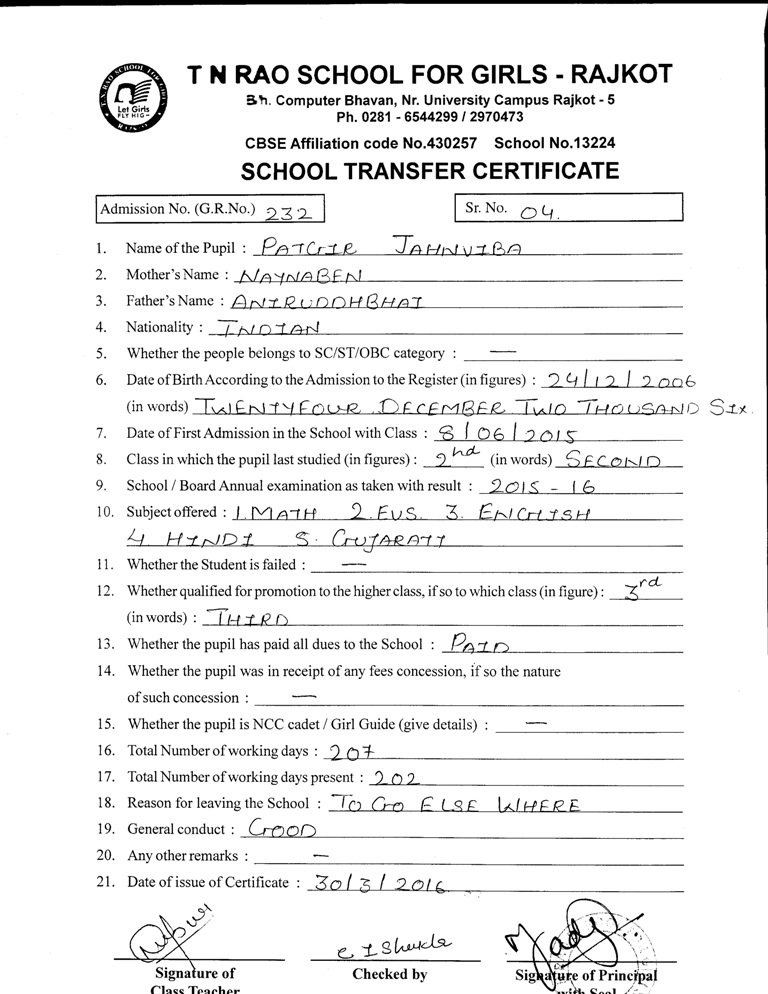 T N RAO SCHOOL FOR GIRLS - RAJKOT
Bh. Computer Bhavan, Nr. University Campus Rajkot - 5
Ph. 0281 - 6544299 / 2970473
CBSE Affiliation code No.430257 School No.13224
SCHOOL TRANSFER CERTIFICATE
T. N. RAO SCHOOL FOR GIRLS
Let Girls
FLY HIGH
RAJKOT
Admission No. (G.R.No.) 232 Sr. No. 04.
1. Name of the Pupil : PATGIR JAHNVIBA
2. Mother's Name : NAYNABEN
3. Father's Name : ANIRUDDHBHAI
4. Nationality : INDIAN
5. Whether the people belongs to SC/ST/OBC category : —
6. Date of Birth According to the Admission to the Register (in figures) : 24/12/2006
(in words) TWENTYFOUR DECEMBER TWO THOUSAND SIX.
7. Date of First Admission in the School with Class : 8/06/2015
8. Class in which the pupil last studied (in figures) : 2nd (in words) SECOND
9. School / Board Annual examination as taken with result : 2015 - 16
10. Subject offered : 1. MATH 2. EVS. 3. ENGLISH
4 HINDI 5. GUJARATI
11. Whether the Student is failed : —
12. Whether qualified for promotion to the higher class, if so to which class (in figure) : 3rd
(in words) : THIRD
13. Whether the pupil has paid all dues to the School : PAID
14. Whether the pupil was in receipt of any fees concession, if so the nature
of such concession : —
15. Whether the pupil is NCC cadet / Girl Guide (give details) : —
16. Total Number of working days : 207
17. Total Number of working days present : 202
18. Reason for leaving the School : TO GO ELSE WHERE
19. General conduct : GOOD
20. Any other remarks : —
21. Date of issue of Certificate : 30/3/2016
Signature of Checked by Signature of Principal
Class Teacher with Seal